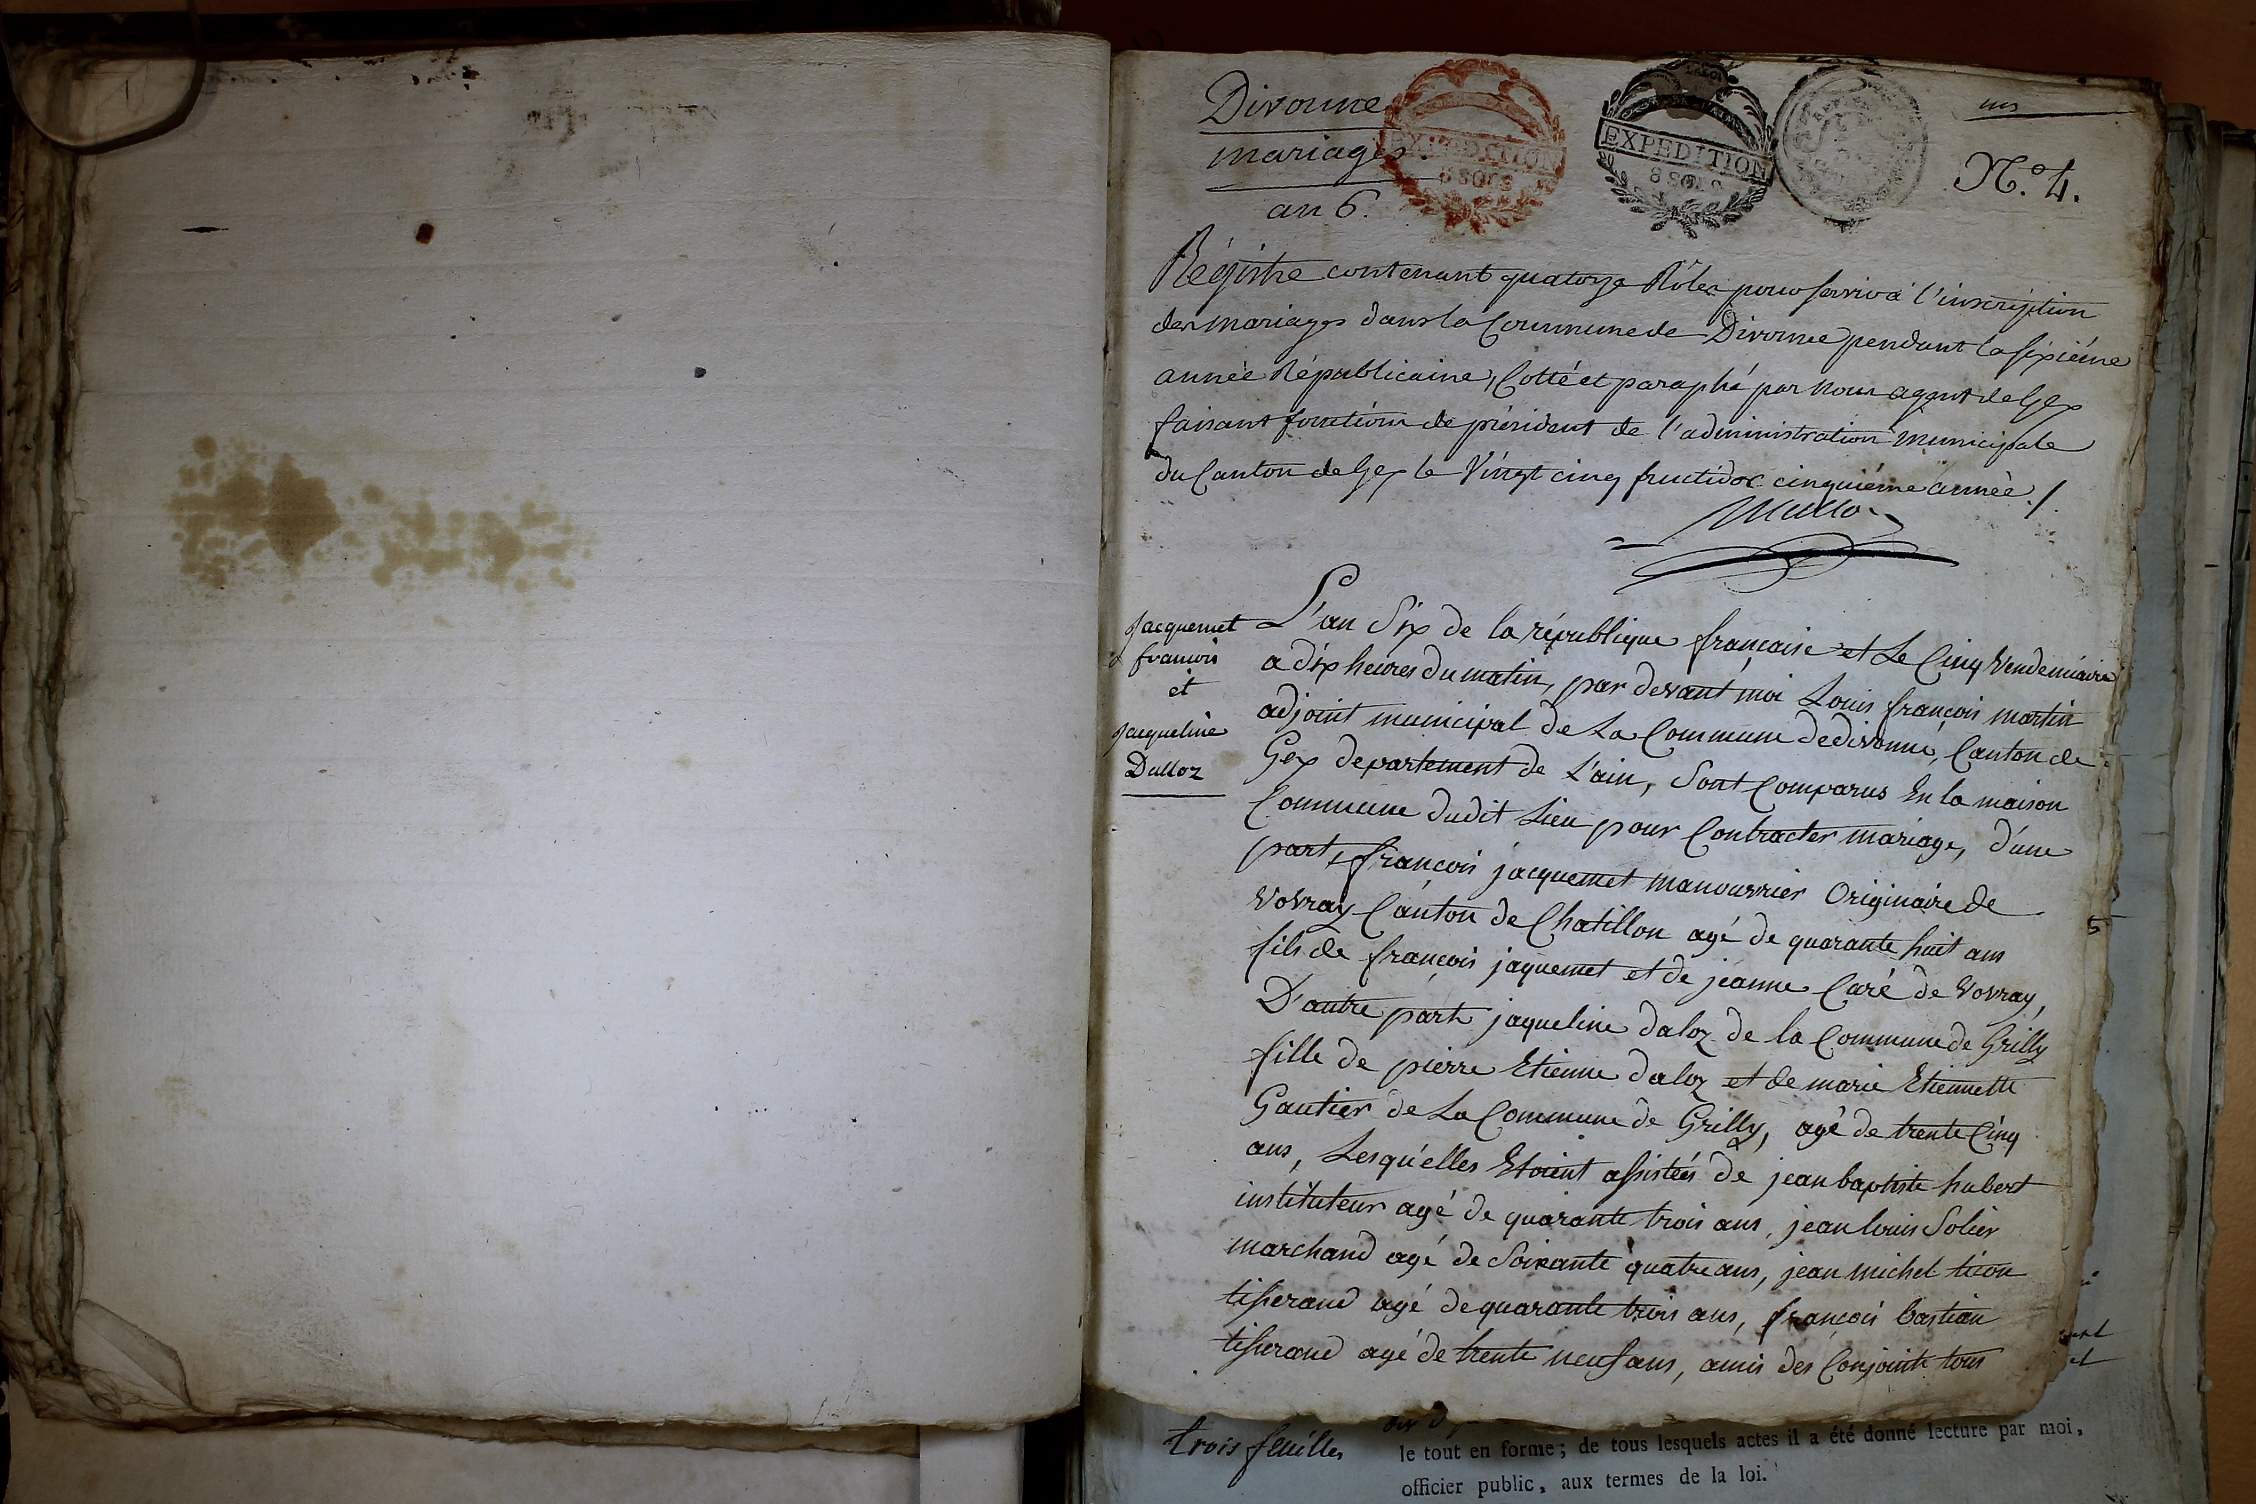 Divonne
mariages
an 6.
EXPEDITION
8 SOLS
EXPEDITION
8 SOLS
N.° 4.
Régistre contenant quatorze Rôles pour servir à l'inscription
des mariages dans la Commune de Divonne pendant la sixiéme
année Républicaine, Cotté et paraphé par nous agent de Gex
faisant fonctions de président de l'administration municipale
du Canton de Gex le Vingt cinq fructidor cinquiéme année ./.
Jacquemet
francois
et
Jacqueline
Dalloz
L'an Six de la république française et Le Cinq Vendemiaire
a dix heures du matin, par devant moi Louis françois martin
adjoint municipal de La Commune de divonne, Canton de
Gex departement de L'ain, sont Comparus En la maison
Commune dudit Lieu pour Contracter mariage, d'une
part, françois jacquemet manouvrier Originaire de
Vovray Canton de Chatillon agé de quarante huit ans
fils de françois jaquemet et de jeanne Caré de Vovray,
D'autre part jaqueline daloz de la Commune de Grilly
fille de pierre Etienne daloz et de marie Etiennette
Gautier de La Commune de Grilly, agé de trente Cinq
ans, Lesqu'elles Etoient assistées de jean baptiste hubert
instituteur agé de quarante trois ans, jean louis Solier
marchand agé de Soixante quatre ans, jean michel
tisserand agé de quarante trois ans, françois bastian
tisserand agé de trente neuf ans, amis des Conjoints tous
5
trois feuilles
le tout en forme; de tous lesquels actes il a été donné lecture par moi,
officier public, aux termes de la loi.